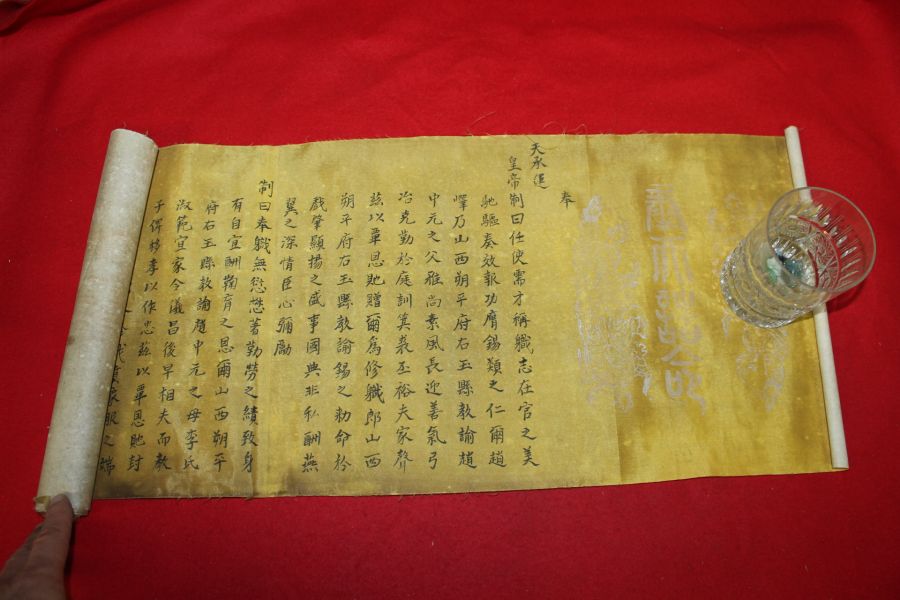 奉
天承運
皇帝制曰任使需才稱職志在官之美
馳驅奏效報功膺錫類之仁爾趙
嶧乃山西朔平府右玉縣教諭趙
中元之父雅尚素風長迎善氣弓
冶克勤於庭訓箕裘丕裕夫家聲
茲以覃恩貤贈爾爲修職郎山西
朔平府右玉縣教諭錫之勅命於
戲肇顯揚之盛事國典非私酬燕
翼之深情臣心彌勵
制曰奉職無愆懋著勤勞之績致身
有自宜酬鞠育之恩爾山西朔平
府右玉縣教諭趙中元之母李氏
淑範宜家令儀昌後早相夫而教
子俾移孝以作忠茲以覃恩貤封
服之端